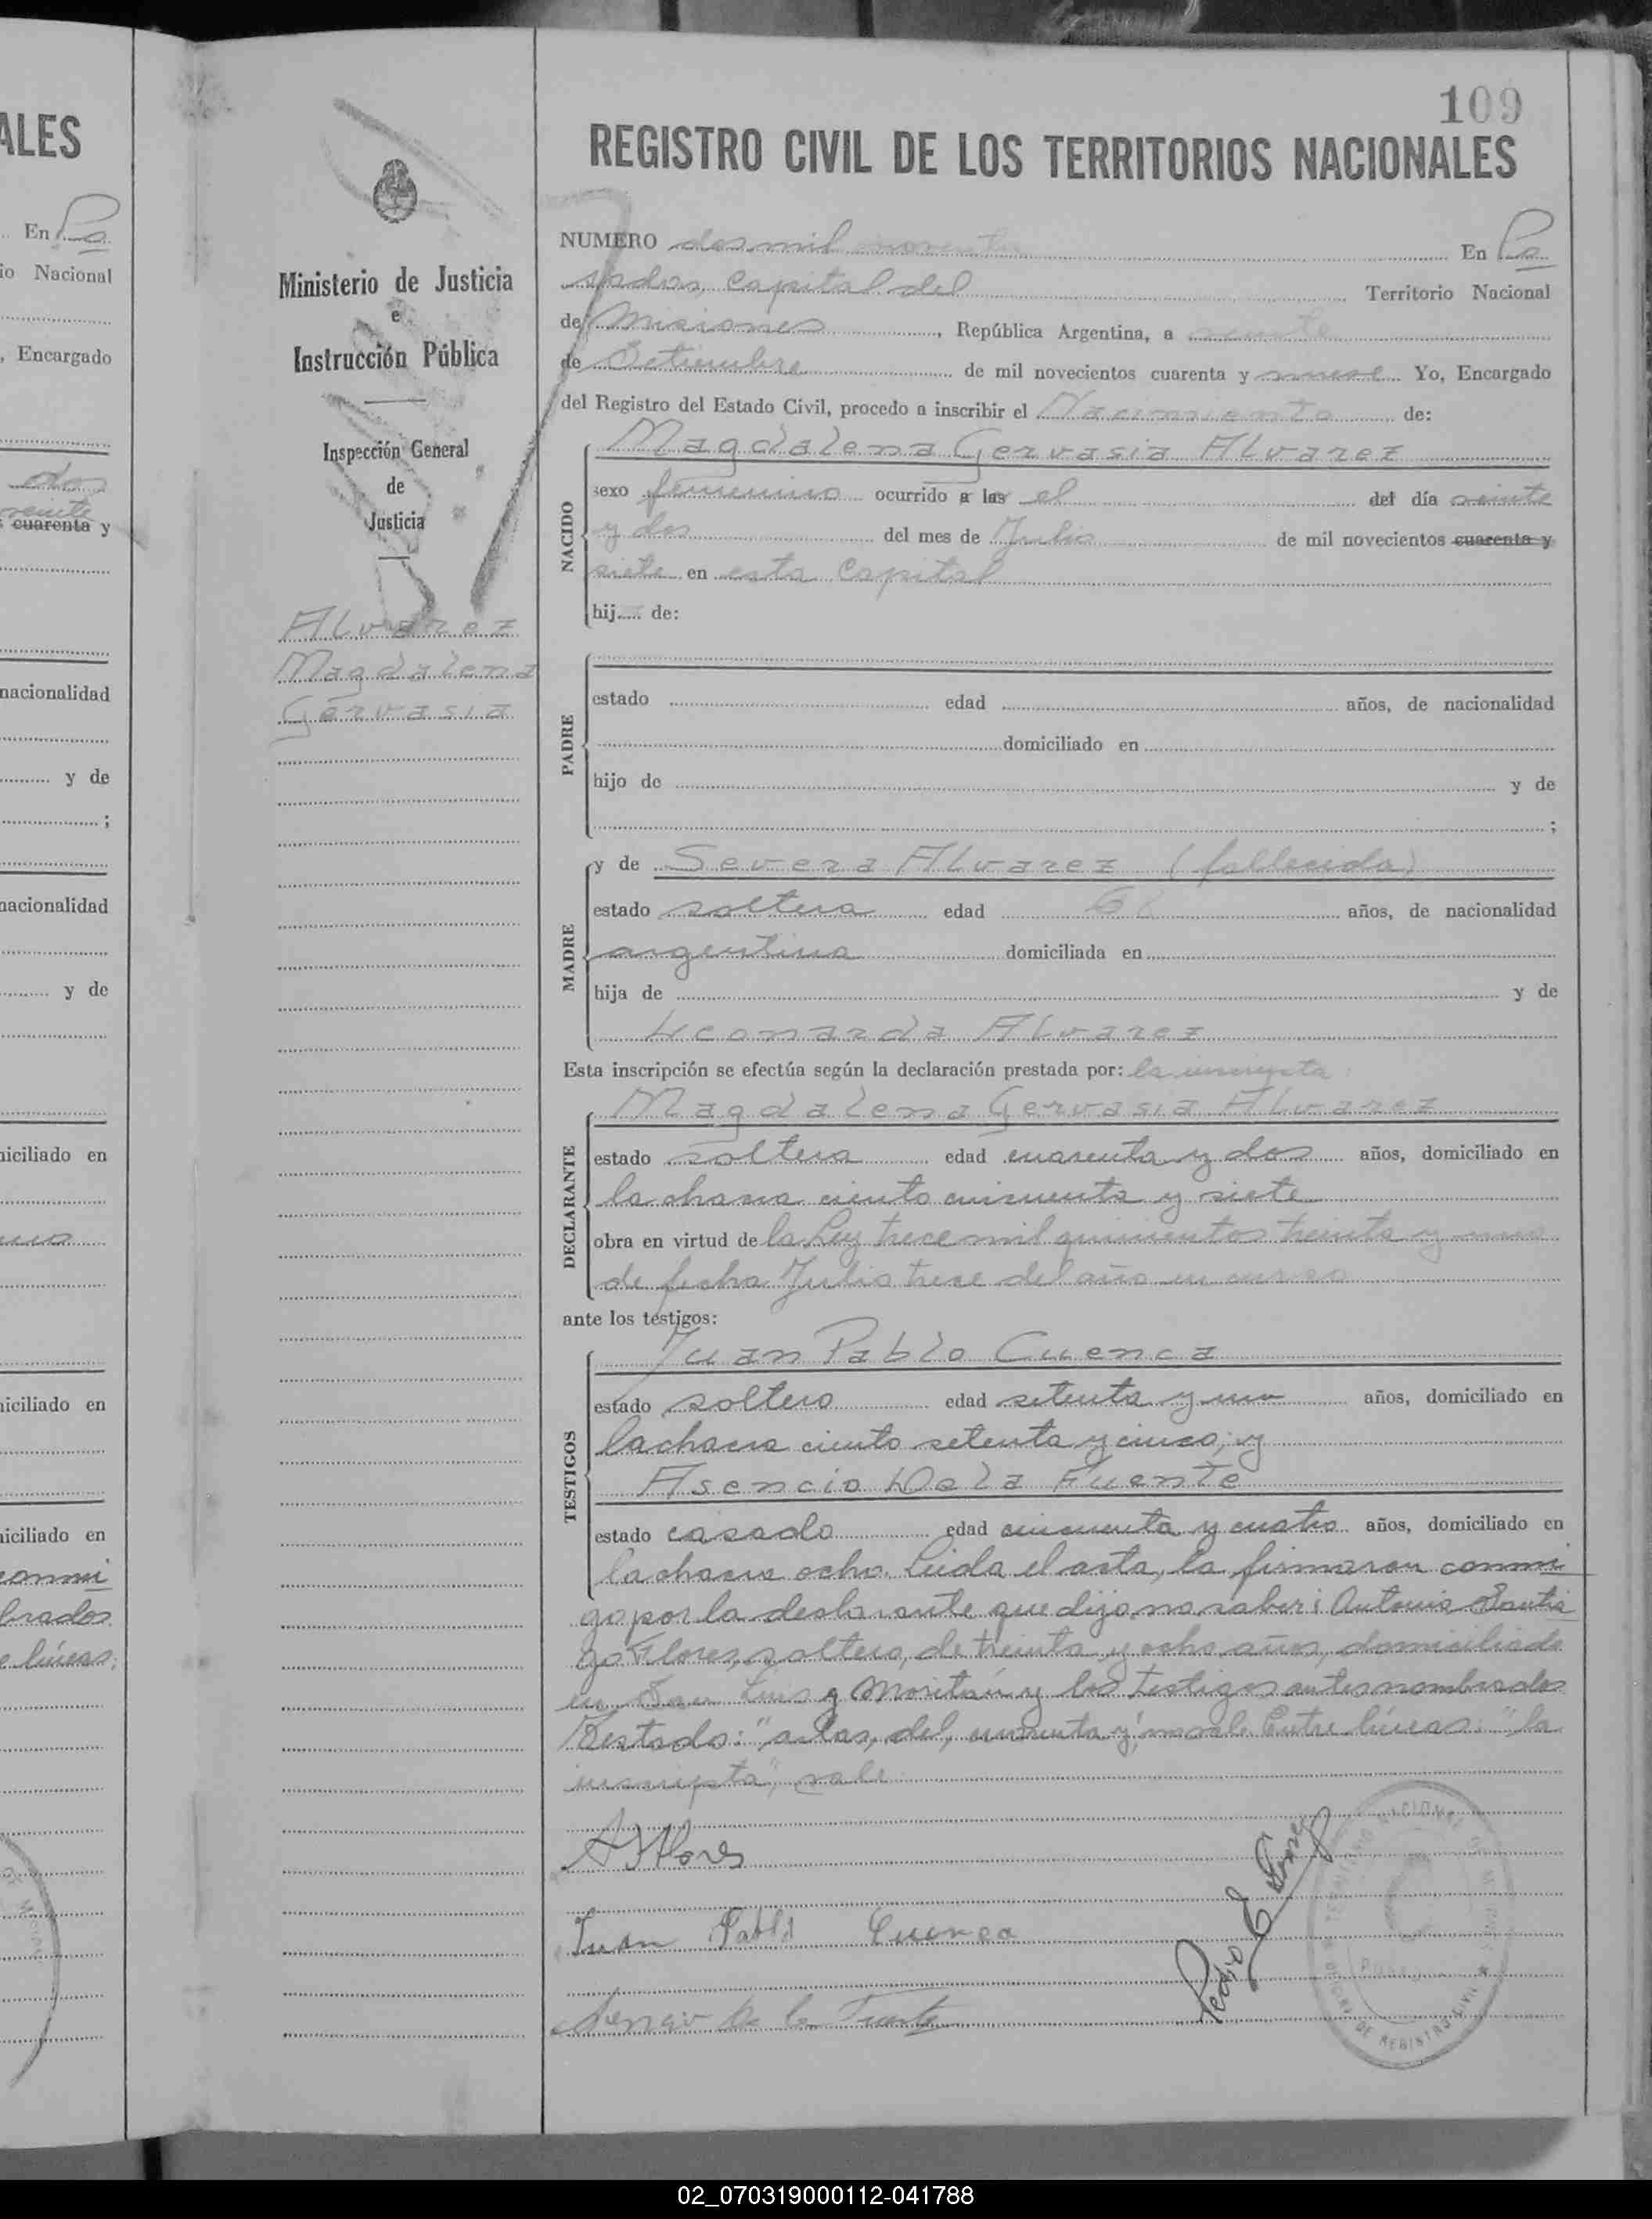 ALES
En Po
io Nacional
, Encargado
dos
veinte
cuarenta y
nacionalidad
y de
;
nacionalidad
y de
niciliado en
niciliado en
niciliado en
conmi
brados
e líneas;
Ministerio de Justicia
e
Instrucción Pública
Inspección General
de
Justicia
Alvarez
Magdalena
Gervasia
109
REGISTRO CIVIL DE LOS TERRITORIOS NACIONALES
NUMERO dos mil noventa En Po
sadas, Capital del Territorio Nacional
de Misiones, República Argentina, a veinte
de Setiembre de mil novecientos cuarenta y nueve Yo, Encargado
del Registro del Estado Civil, procedo a inscribir el Nacimiento de:
NACIDO
Magdalena Gervasia Alvarez
sexo femenino ocurrido a las el del día veinte
y dos del mes de Julio de mil novecientos cuarenta y
siete en esta Capital
hij de:
PADRE
estado edad años, de nacionalidad
domiciliado en
hijo de y de
;
MADRE
y de Severa Alvarez (fallecida)
estado soltera edad años, de nacionalidad
argentina domiciliada en
hija de y de
Leonarda Alvarez
Esta inscripción se efectúa según la declaración prestada por: la inscripta
DECLARANTE
Magdalena Gervasia Alvarez
estado soltera edad cuarenta y dos años, domiciliado en
la chacra ciento cincuenta y siete
obra en virtud de la Ley trece mil quinientos treinta y uno
de fecha Julio trece del año en curso
ante los testigos:
TESTIGOS
Juan Pablo Cuenca
estado soltero edad setenta y uno años, domiciliado en
la chacra ciento setenta y cinco, y
Asencio De la Fuente
estado casado edad cincuenta y cuatro años, domiciliado en
la chacra ocho. Leida el acta, la firmaron conmi
go por la declarante que dijo no saber: Antonio Santia
go Flores, soltero, de treinta y ocho años, domiciliado
en San Luis y Moritán y los testigos antes nombrados
Testado: "a las, del, cuarenta y", no vale. Entre líneas: "la
inscripta", vale
A S Flores
Juan Pablo Cuenca
Asencio De la Fuente
Pedro E
TERRITORIO NACIONAL DE MISIONES
OFICINA DE REGISTRO CIVIL
02_070319000112-041788